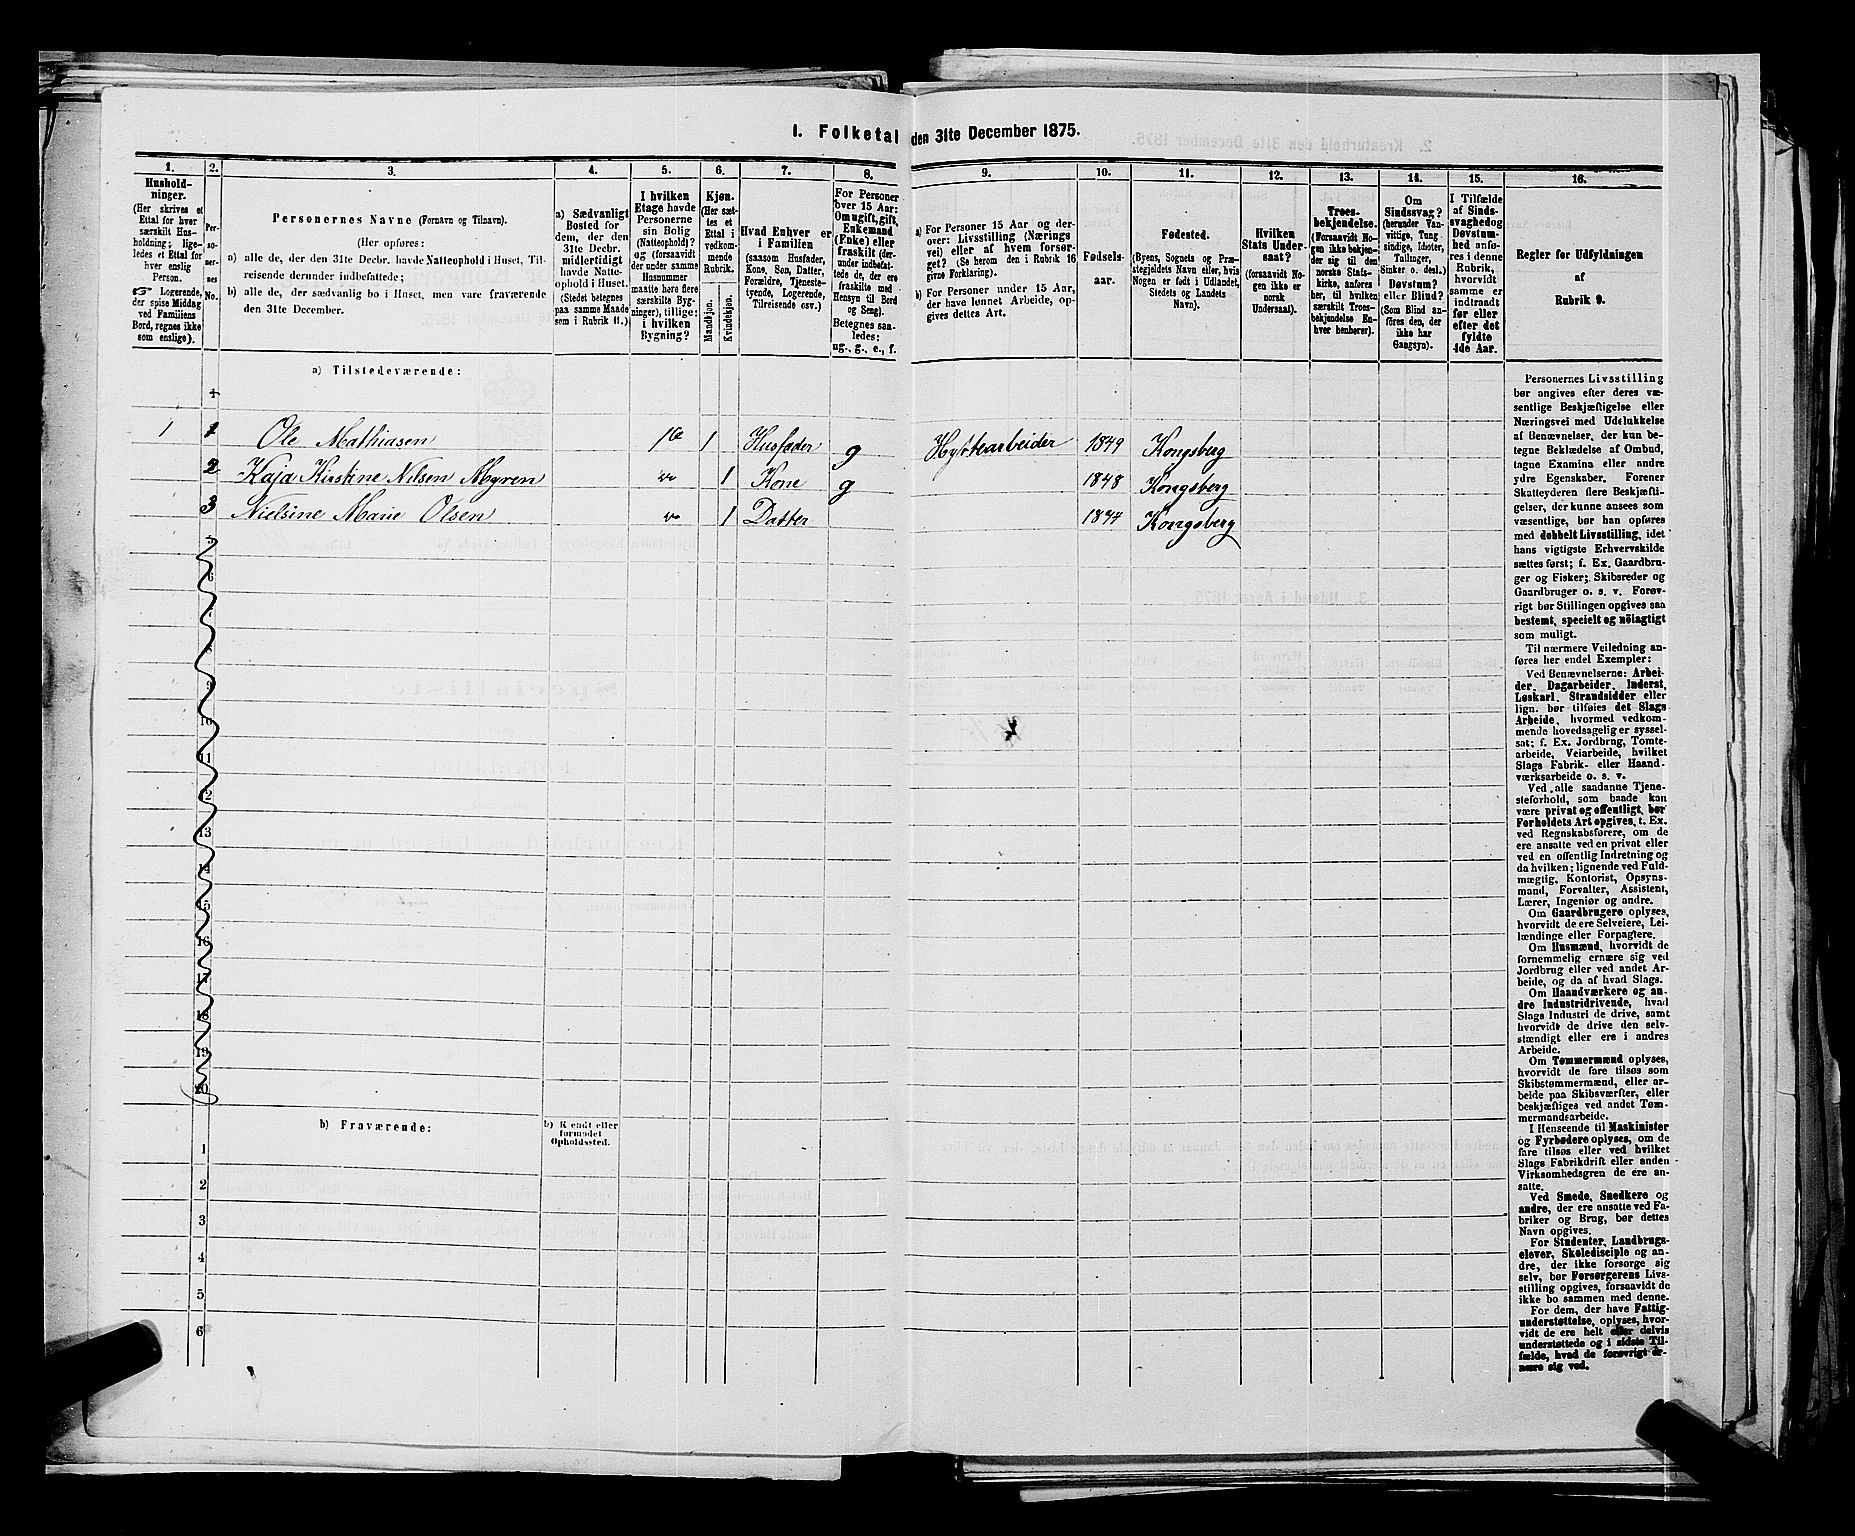 I. Folketal den 31te December 1875.
1.
2.
3.
4.
5.
6.
7.
8.
9.
10.
11.
12.
13.
14.
15.
16.
Hushold-
ninger.
(Her skrives et
Ettal for hver
særskilt Hus-
holdning; lige-
ledes et Ettal for
hver enslig
Person.
☞ Logerende,
der spise Middag
ved Familiens
Bord, regnes ikke
som enslige).
Per-
so-
ner-
nes
No.
Personernes Navne (Fornavn og Tilnavn).
(Her opføres:
a) alle de, der den 31te Decbr. havde Natteophold i Huset, Til-
reisende derunder indbefattede;
b) alle de, der sædvanlig bo i Huset, men vare fraværende
den 31te December.
a) Sædvanligt
Bosted for
dem, der den
31te Decbr.
midlertidigt
havde Natte-
ophold i Huset.
(Stedet betegnes
paa samme Maade
som i Rubrik 11.)
I hvilken
Etage havde
Personerne
sin Bolig
(Natteophold)?
og (forsaavidt
der under samme
Husnummer
maatte høre flere
særskilte Byg-
ninger), tillige:
i hvilken
Bygning?
Kjøn.
(Her sæt-
tes et
Ettal i
vedkom-
mende
Rubrik.
Mandkjøn.
Kvindekjøn.
Hvad Enhver er
i Familien
(saasom Husfader,
Kone, Søn, Datter,
Forældre, Tjeneste-
tyende, Logerende,
Tilreisende osv.)
For Personer
over 15 Aar:
Om ugift, gift,
Enkemand
(Enke) eller
fraskilt (der-
under indbefat-
tede de, der ere
fraskilte med
Hensyn til Bord
og Seng).
Betegnes saa-
ledes:
ug., g., e., f.
a) For Personer 15 Aar og der-
over: Livsstilling (Nærings-
vei) eller af hvem forsør-
get? (Se herom den i Rubrik 16
givne Forklaring).
b) For Personer under 15 Aar,
der have lønnet Arbeide, op-
gives dettes Art.
Fødsels-
aar.
Fødested.
(Byens, Sognets og Præ-
stegjeldets Navn eller, hvis
Nogen er født i Udlandet,
Stedets og Landets
Navn).
Hvilken
Stats Under-
saat?
(forsaavidt No-
gen ikke er
norsk
Undersaat).
Troes-
bekjendelse.
(Forsaavidt No-
gen ikke bekjen-
der sig til den
norske Stats-
kirke, anføres
her, til hvilken
særskilt Troes-
bekjendelse En-
hver henhører).
Om
Sindssvag?
(herunder Van-
vittige, Tung-
sindige, Idioter,
Tullinger,
Sinker o. desl.)
Døvstum?
eller Blind?
(Som Blind an-
føres den, der
ikke har
Gangsyn).
I Tilfælde
af Sinds-
svaghed og
Døvstum-
hed anfø-
res i denne
Rubrik,
hvorvidt
samme er
indtraadt
før eller
efter det
fyldte
4de Aar.
Regler for Udfyldningen
af
Rubrik 9.
a) Tilstedeværende:
1 1 Ole Mathiasen 1 Husfader g Hyttearbeider 1849 Kongsberg
2 Kaja Kirstine Nilsen Myren 1 Kone g 1848 Kongsberg
3 Nielsine Marie Olsen 1 Datter Kongsberg
5
6
7
8
9
10
11
12
13
14
15
16
17
18
19
20
b) Fraværende:
b) Kjendt eller
formodet
Opholdssted.
1
2
3
4
5
6
Personernes Livsstilling
bør angives efter deres væ-
sentlige Beskjæftigelse eller
Næringsvei med Udelukkelse
af Benævnelser, der kun be-
tegne Beklædelse af Ombud,
tagne Examina eller andre
ydre Egenskaber. Forener
Skatteyderen flere Beskjæfti-
gelser, der kunne ansees som
væsentlige, bør han opføres
med dobbelt Livsstilling, idet
hans vigtigste Erhvervskilde
sættes først; f. Ex. Gaardbru-
ger og Fisker; Skibsreder og
Gaardbruger o. s. v. Forøv-
rigt bør Stillingen opgives saa
bestemt, specielt og nöiagtigt
som muligt.
Til nærmere Veiledning an-
føres her endel Exempler:
Ved Benævnelserne: Arbei-
der, Dagarbeider, Inderst,
Løskarl, Strandsidder eller
lign. bør tilføies det Slags
Arbeide, hvormed vedkom-
mende hovedsagelig er syssel-
sat; f. Ex. Jordbrug, Tomte-
arbeide, Veiarbeide, hvilket
Slags Fabrik- eller Haand-
værksarbeide o. s. v.
Ved alle saadanne Tjene-
steforhold, som baade kan
være privat og offentligt, bør
Forholdets Art opgives, t. Ex.
ved Regnskabsførere, om de
ere ansatte ved en privat eller
ved en offentlig Indretning og
da hvilken; lignende ved Fuld-
mægtig, Kontorist, Opsyns-
mand, Forvalter, Assistent,
Lærer, Ingeniør og andre.
Om Gaardbrugere oplyses,
hvorvidt de ere Selveiere, Lei-
lændinge eller Forpagtere.
Om Husmænd, hvorvidt de
fornemmelig ernære sig ved
Jordbrug eller ved andet Ar-
beide, og da af hvad Slags.
Om Haandværkere og an-
dre Industridrivende, hvad
Slags Industri de drive, samt
hvorvidt de drive den selv-
stændigt eller ere i andres
Arbeide.
Om Tømmermænd oplyses,
hvorvidt de fare tilsøs som
Skibstømmermænd, eller ar-
beide paa Skibsværfter, eller
beskjæftiges ved andet Tøm-
mermandsarbeide.
I Henseende til Maskinister
og Fyrbødere oplyses, om de
fare tilsøs eller ved hvilket
Slags Fabrikdrift eller anden
Virksomhedsgren de ere an-
satte.
Ved Smede, Snedkere og
andre, der ere ansatte ved Fa-
briker og Brug, bør dettes
Navn opgives.
For Studenter, Landbrugs-
elever, Skoledisciple og an-
dre, der ikke forsørge sig
selv, bør Forsørgerens Livs-
stilling opgives, forsaavidt de
ikke bo sammen med denne.
For dem, der have Fattig-
understøttelse, oplyses, hvor-
vidt de ere helt eller delvis
understøttede og i sidste Til-
fælde, hvad de forøvrigt er-
nære sig ved.